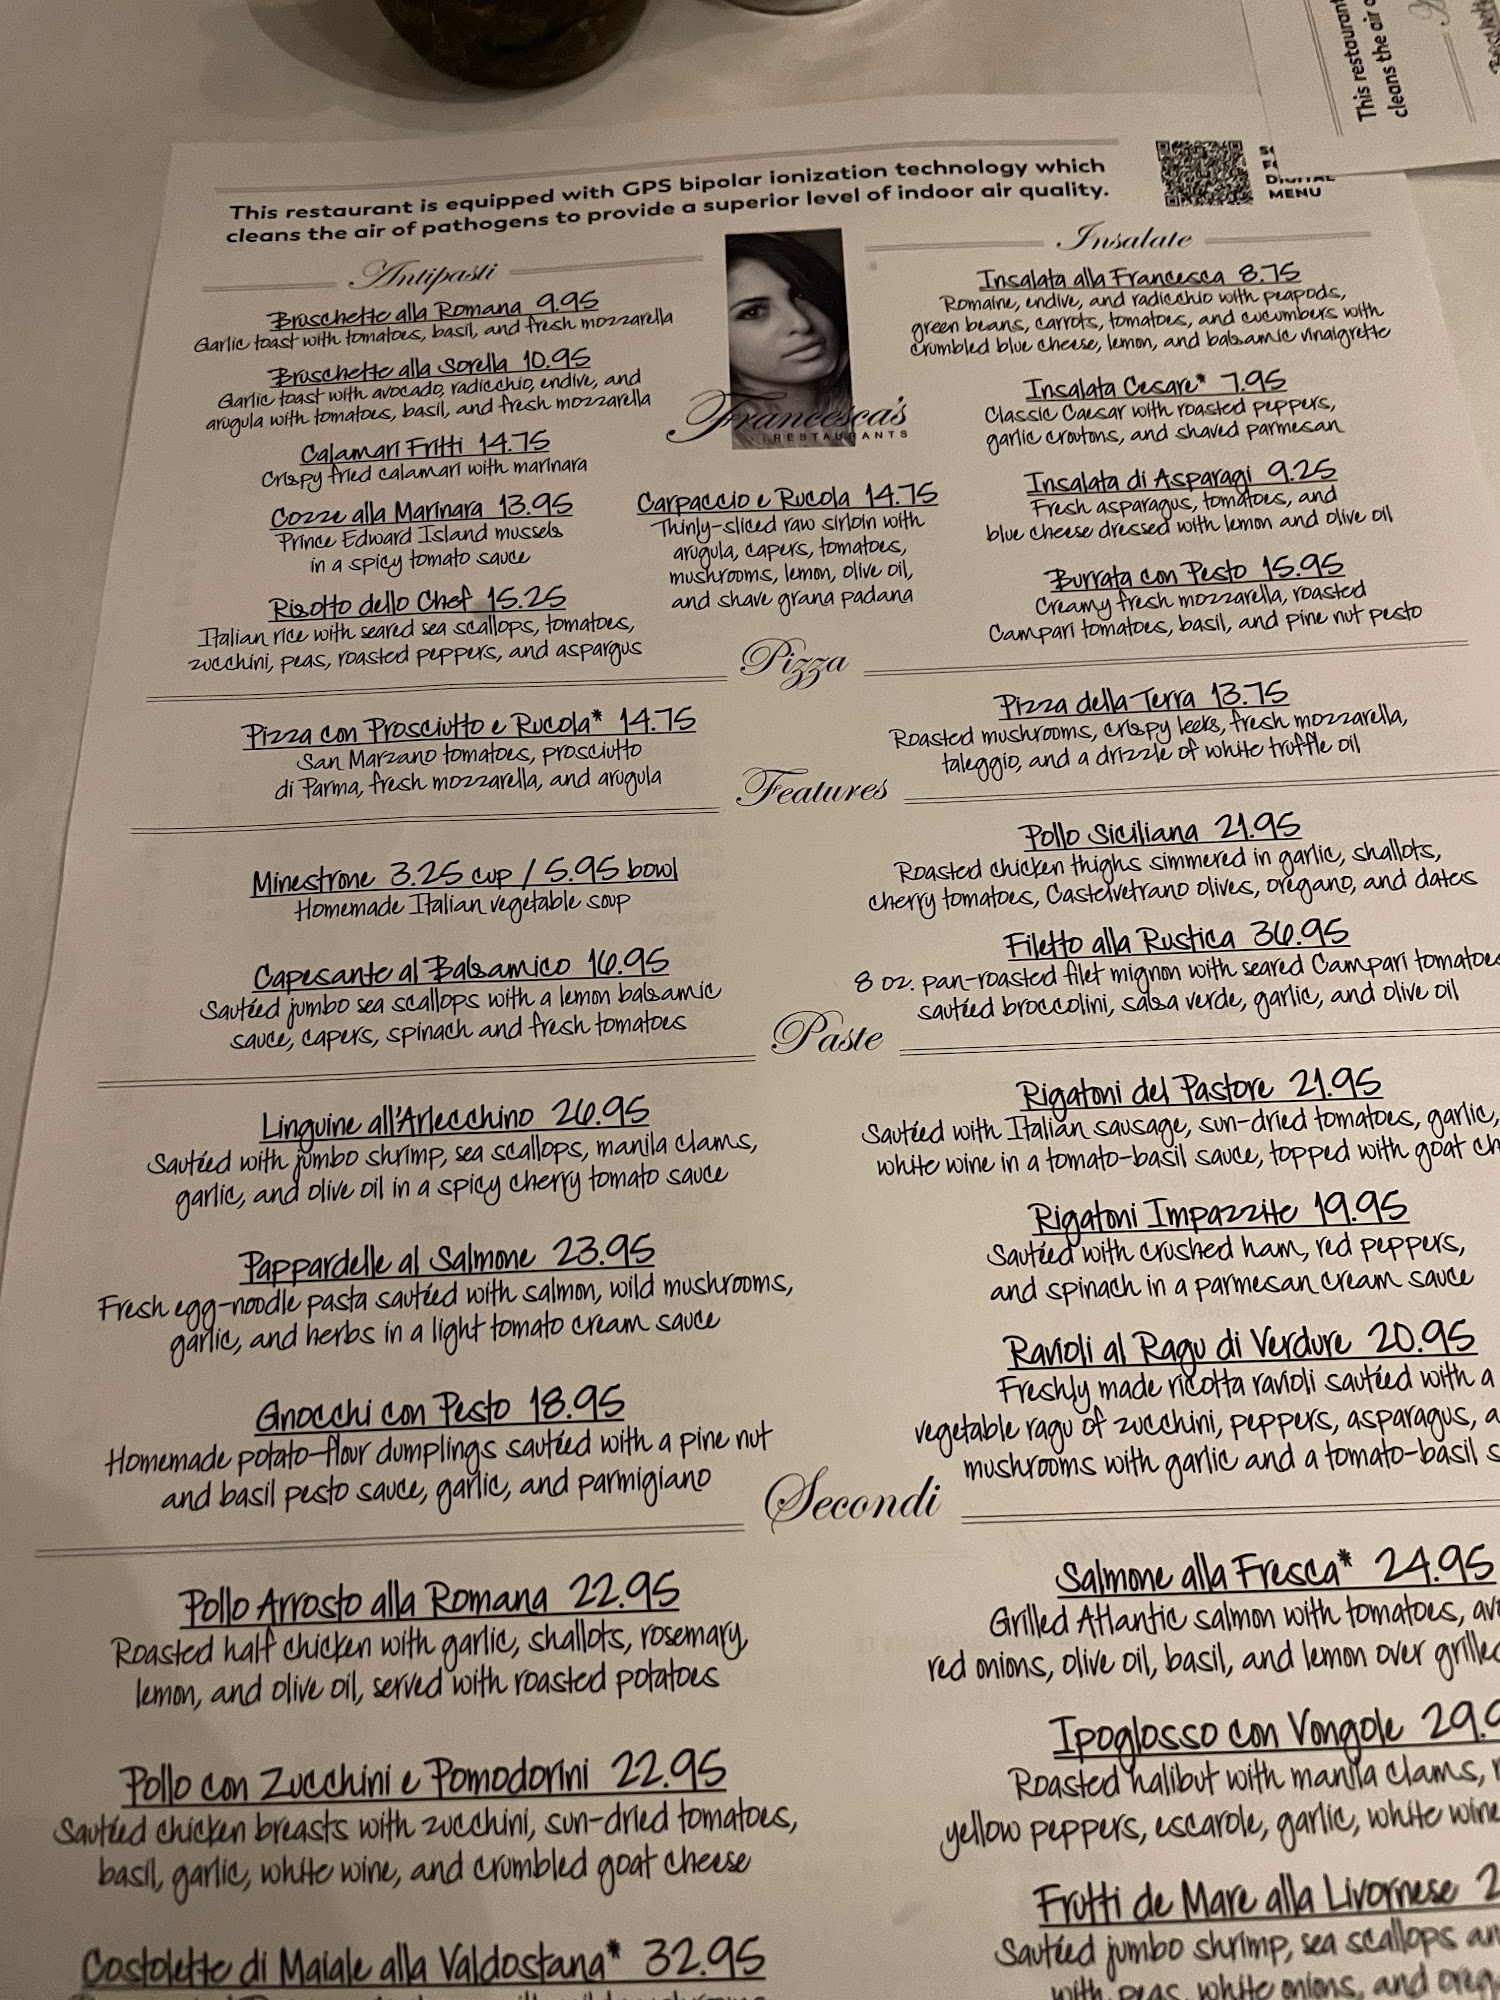 This restaurant
cleans the air
This restaurant is equipped with GPS bipolar ionization technology which
cleans the air of pathogens to provide a superior level of indoor air quality.
DIGITAL
MENU
Antipasti
Bruschette alla Romana 9.95
Garlic toast with tomatoes, basil, and fresh mozzarella
Bruschette alla Sorella 10.95
Garlic toast with avocado, radicchio, endive, and
arugula with tomatoes, basil, and fresh mozzarella
Calamari Fritti 14.75
Crispy fried calamari with marinara
Cozze alla Marinara 13.95
Prince Edward Island mussels
in a spicy tomato sauce
Risotto dello Chef 15.25
Italian rice with seared sea scallops, tomatoes,
zucchini, peas, roasted peppers, and aspargus
Francesca's
RESTAURANTS
Carpaccio e Rucola 14.75
Thinly-sliced raw sirloin with
arugula, capers, tomatoes,
mushrooms, lemon, olive oil,
and shave grana padana
Insalate
Insalata alla Francesca 8.75
Romaine, endive, and radicchio with peapods,
green beans, carrots, tomatoes, and cucumbers with
crumbled blue cheese, lemon, and balsamic vinaigrette
Insalata Cesare* 7.95
Classic Caesar with roasted peppers,
garlic croutons, and shaved parmesan
Insalata di Asparagi 9.25
Fresh asparagus, tomatoes, and
blue cheese dressed with lemon and olive oil
Burrata con Pesto 15.95
Creamy fresh mozzarella, roasted
Campari tomatoes, basil, and pine nut pesto
Pizza
Pizza con Prosciutto e Rucola* 14.75
San Marzano tomatoes, prosciutto
di Parma, fresh mozzarella, and arugula
Pizza della Terra 13.75
Roasted mushrooms, crispy leeks, fresh mozzarella,
taleggio, and a drizzle of white truffle oil
Features
Minestrone 3.25 cup / 5.95 bowl
Homemade Italian vegetable soup
Capesante al Balsamico 16.95
Sautéed jumbo sea scallops with a lemon balsamic
sauce, capers, spinach and fresh tomatoes
Pollo Siciliana 21.95
Roasted chicken thighs simmered in garlic, shallots,
cherry tomatoes, Castelvetrano olives, oregano, and dates
Filetto alla Rustica 36.95
8 oz. pan-roasted filet mignon with seared Campari tomatoes
sautéed broccolini, salsa verde, garlic, and olive oil
Paste
Linguine all'Arlecchino 26.95
Sautéed with jumbo shrimp, sea scallops, manila clams,
garlic, and olive oil in a spicy cherry tomato sauce
Pappardelle al Salmone 23.95
Fresh egg-noodle pasta sautéed with salmon, wild mushrooms,
garlic, and herbs in a light tomato cream sauce
Gnocchi con Pesto 18.95
Homemade potato-flour dumplings sautéed with a pine nut
and basil pesto sauce, garlic, and parmigiano
Rigatoni del Pastore 21.95
Sautéed with Italian sausage, sun-dried tomatoes, garlic,
white wine in a tomato-basil sauce, topped with goat ch
Rigatoni Impazzite 19.95
Sautéed with crushed ham, red peppers,
and spinach in a parmesan cream sauce
Ravioli al Ragu di Verdure 20.95
Freshly made ricotta ravioli sautéed with a
vegetable ragu of zucchini, peppers, asparagus, a
mushrooms with garlic and a tomato-basil s
Secondi
Pollo Arrosto alla Romana 22.95
Roasted half chicken with garlic, shallots, rosemary,
lemon, and olive oil, served with roasted potatoes
Pollo con Zucchini e Pomodorini 22.95
Sautéed chicken breasts with zucchini, sun-dried tomatoes,
basil, garlic, white wine, and crumbled goat cheese
Costolette di Maiale alla Valdostana* 32.95
Salmone alla Fresca* 24.95
Grilled Atlantic salmon with tomatoes, avo
red onions, olive oil, basil, and lemon over grilled
Ipoglosso con Vongole 29.9
Roasted halibut with manila clams, r
yellow peppers, escarole, garlic, white wine
Frutti de Mare alla Livornese 2
Sautéed jumbo shrimp, sea scallops an
with peas, white onions, and oreg